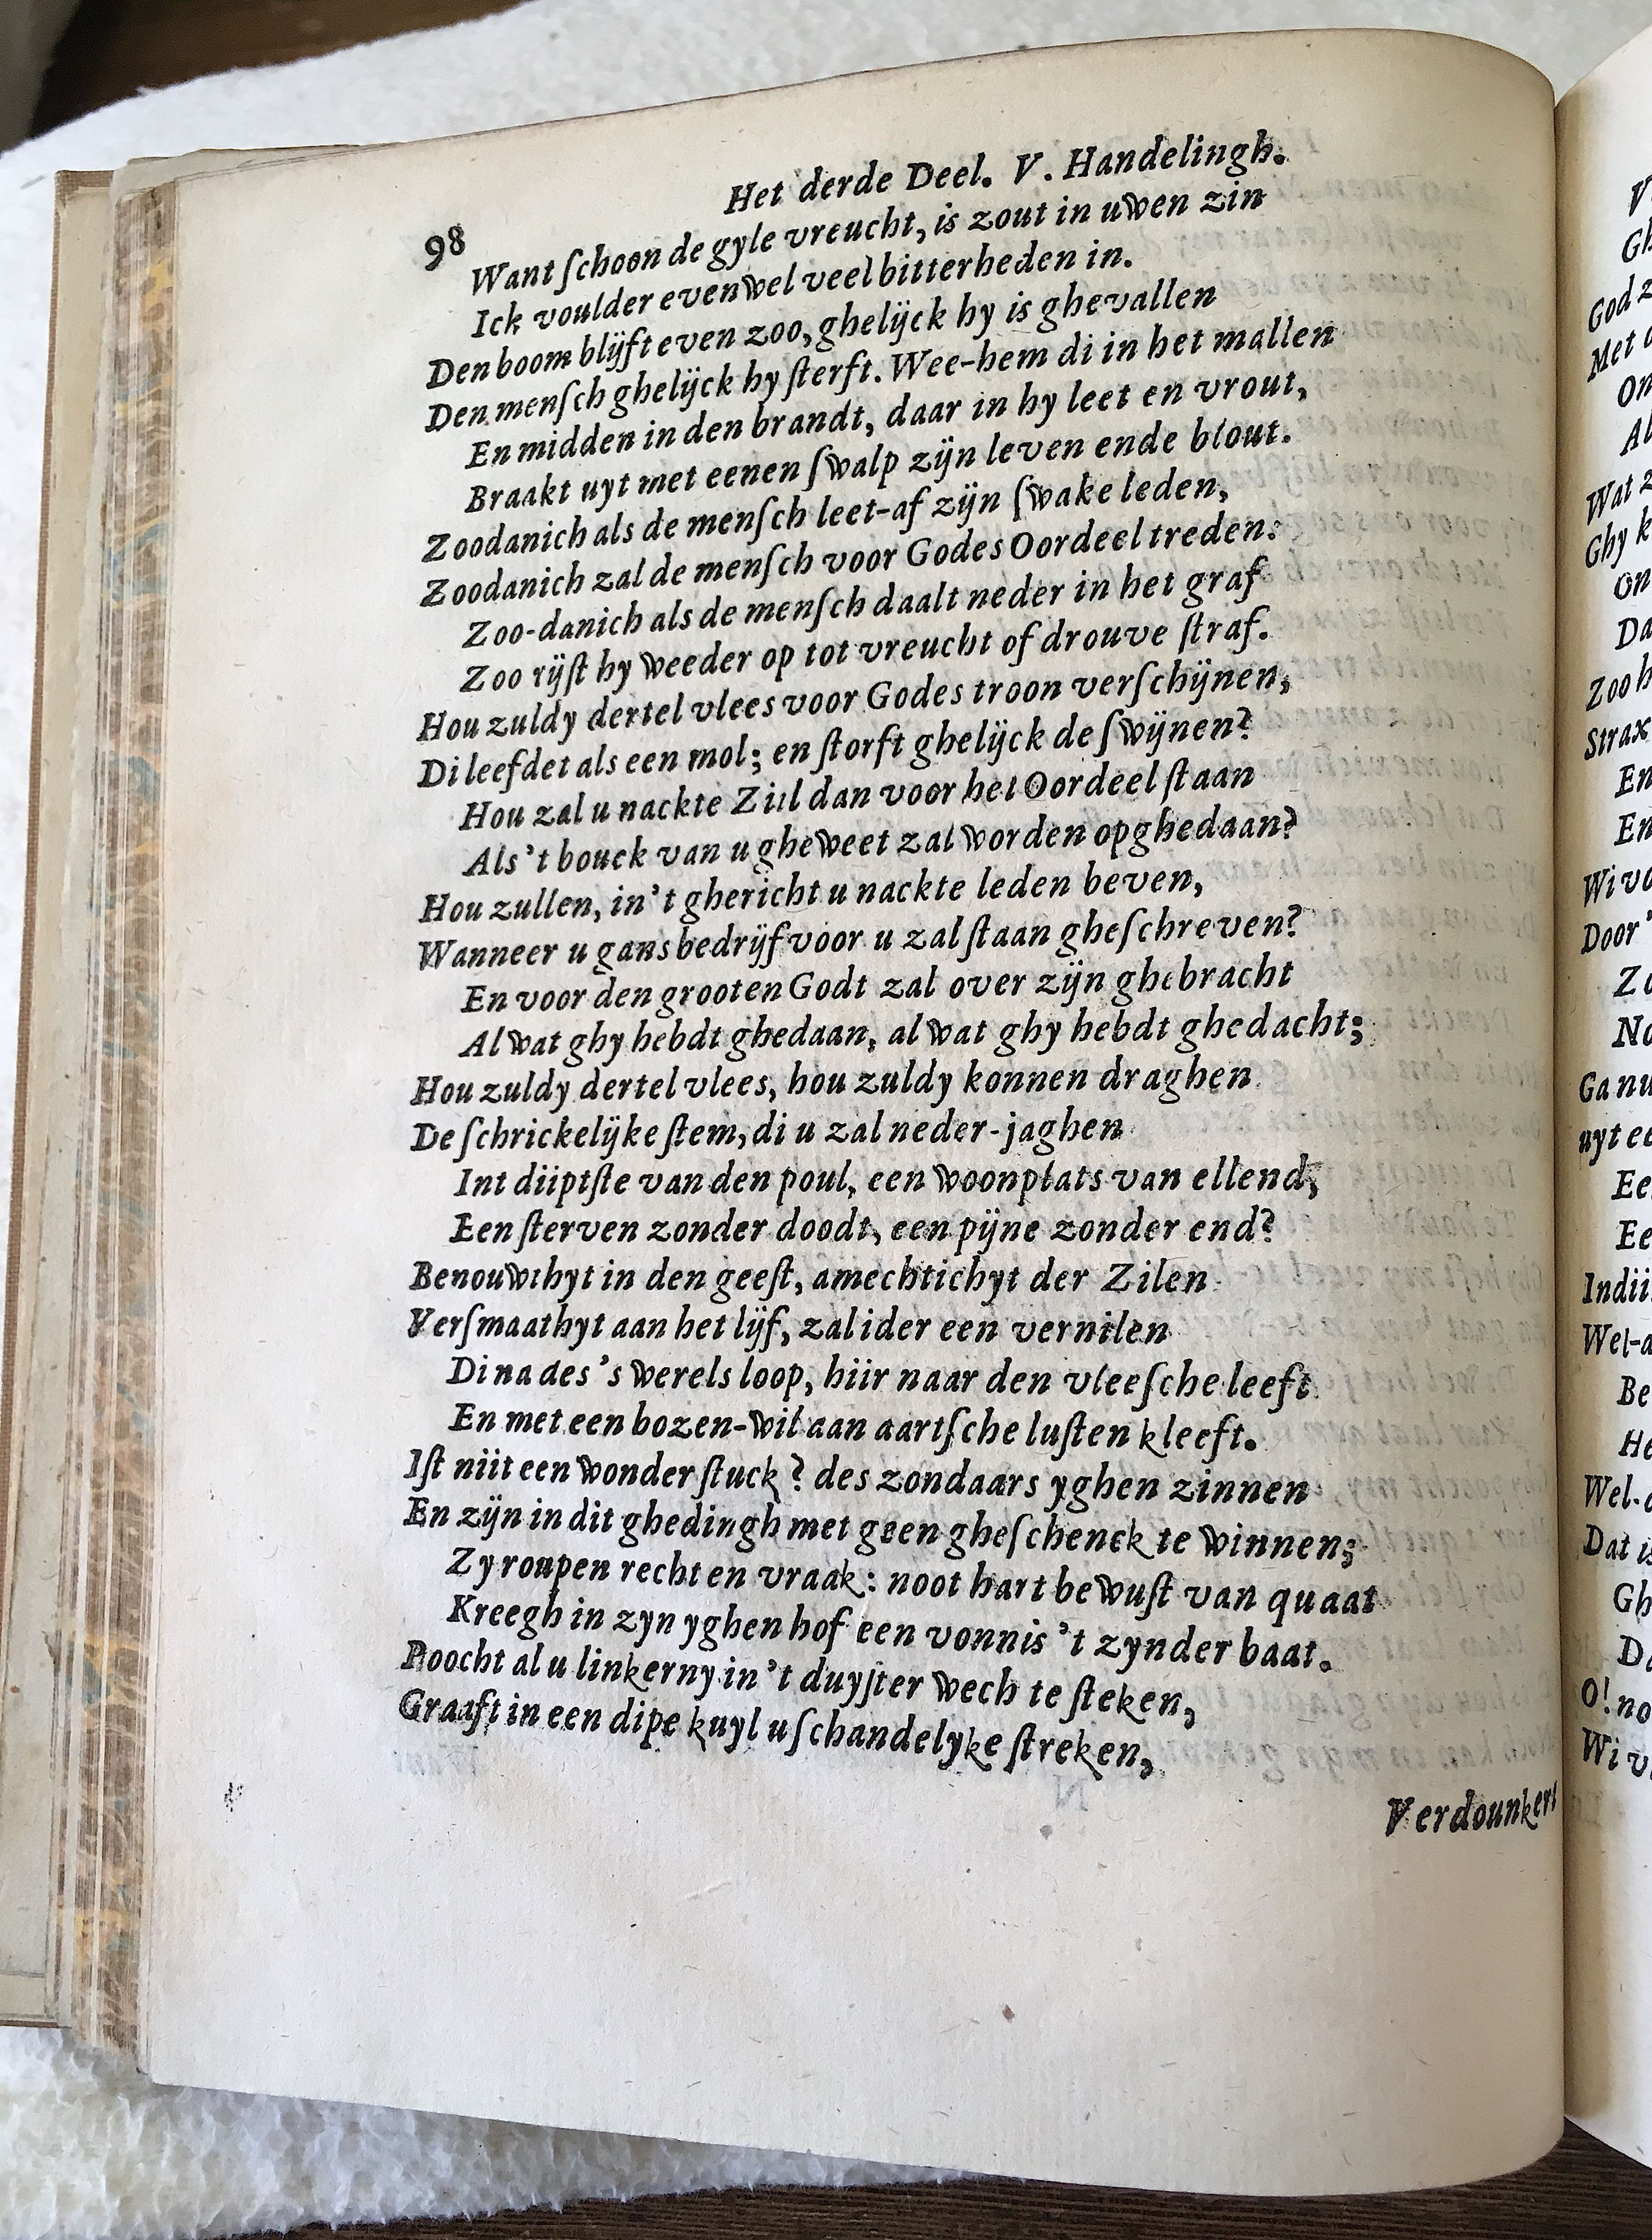 Het derde Deel. V. Handelingh.
98
Want ſchoon de gyle vreucht, is zout in uwen zin
Ick voulder evenwel veel bitterheden in.
Den boom blijft even zoo, ghelijck hy is ghevallen
Den menſch ghelijck hy ſterft. Wee-hem di in het mallen
En midden in den brandt, daar in hy leet en vrout,
Braakt uyt met eenen ſwalp zijn leven ende blout.
Zoodanich als de menſch leet-af zijn ſwake leden,
Zoodanich zal de menſch voor Godes Oordeel treden:
Zoo-danich als de menſch daalt neder in het graf
Zoo rijſt hy weeder op tot vreucht of drouve ſtraf.
Hou zuldy dertel vlees voor Godes troon verſchijnen,
Di leefdet als een mol; en ſtorft ghelijck de ſwijnen?
Hou zal u nackte Ziil dan voor het Oordeel ſtaan
Als 't bouck van u gheweet zal worden opghedaan?
Hou zullen, in 't ghericht u nackte leden beven,
Wanneer u gans bedrijf voor u zal ſtaan gheſchreven?
En voor den grooten Godt zal over zijn ghebracht
Al wat ghy hebdt ghedaan, al wat ghy hebdt ghedacht;
Hou zuldy dertel vlees, hou zuldy konnen draghen
De ſchrickelijke ſtem, di u zal neder-jaghen
Int diiptſte van den poul, een woonplats van ellend,
Een ſterven zonder doodt, een pijne zonder end?
Benouwthyt in den geeſt, amechtichyt der Zilen
Verſmaathyt aan het lijf, zal ider een vernilen
Di na des 's werels loop, hiir naar den vleeſche leeft
En met een bozen-wil aan aartſche luſten kleeft.
Iſt niit een wonder ſtuck? des zondaars yghen zinnen
En zijn in dit ghedingh met geen gheſchenck te winnen;
Zy roupen recht en vraak: noot hart bewuſt van quaat
Kreegh in zyn yghen hof een vonnis 't zynder baat.
Poocht al u linkerny in 't duyſter wech te ſteken,
Graaft in een dipe kuyl u ſchandelyke ſtreken,
Verdounkert
V
Gh
God z
Met
On
Al
Wat z
Ghy k
On
Da
Zoo h
Strax
En
En
Wi vo
Door '
Zo
No
Ga nu
uyt ee
Ee
Ee
Indii
Wel-a
Be
He
Wel-
Dat is
Gh
Da
O! no
Wi v